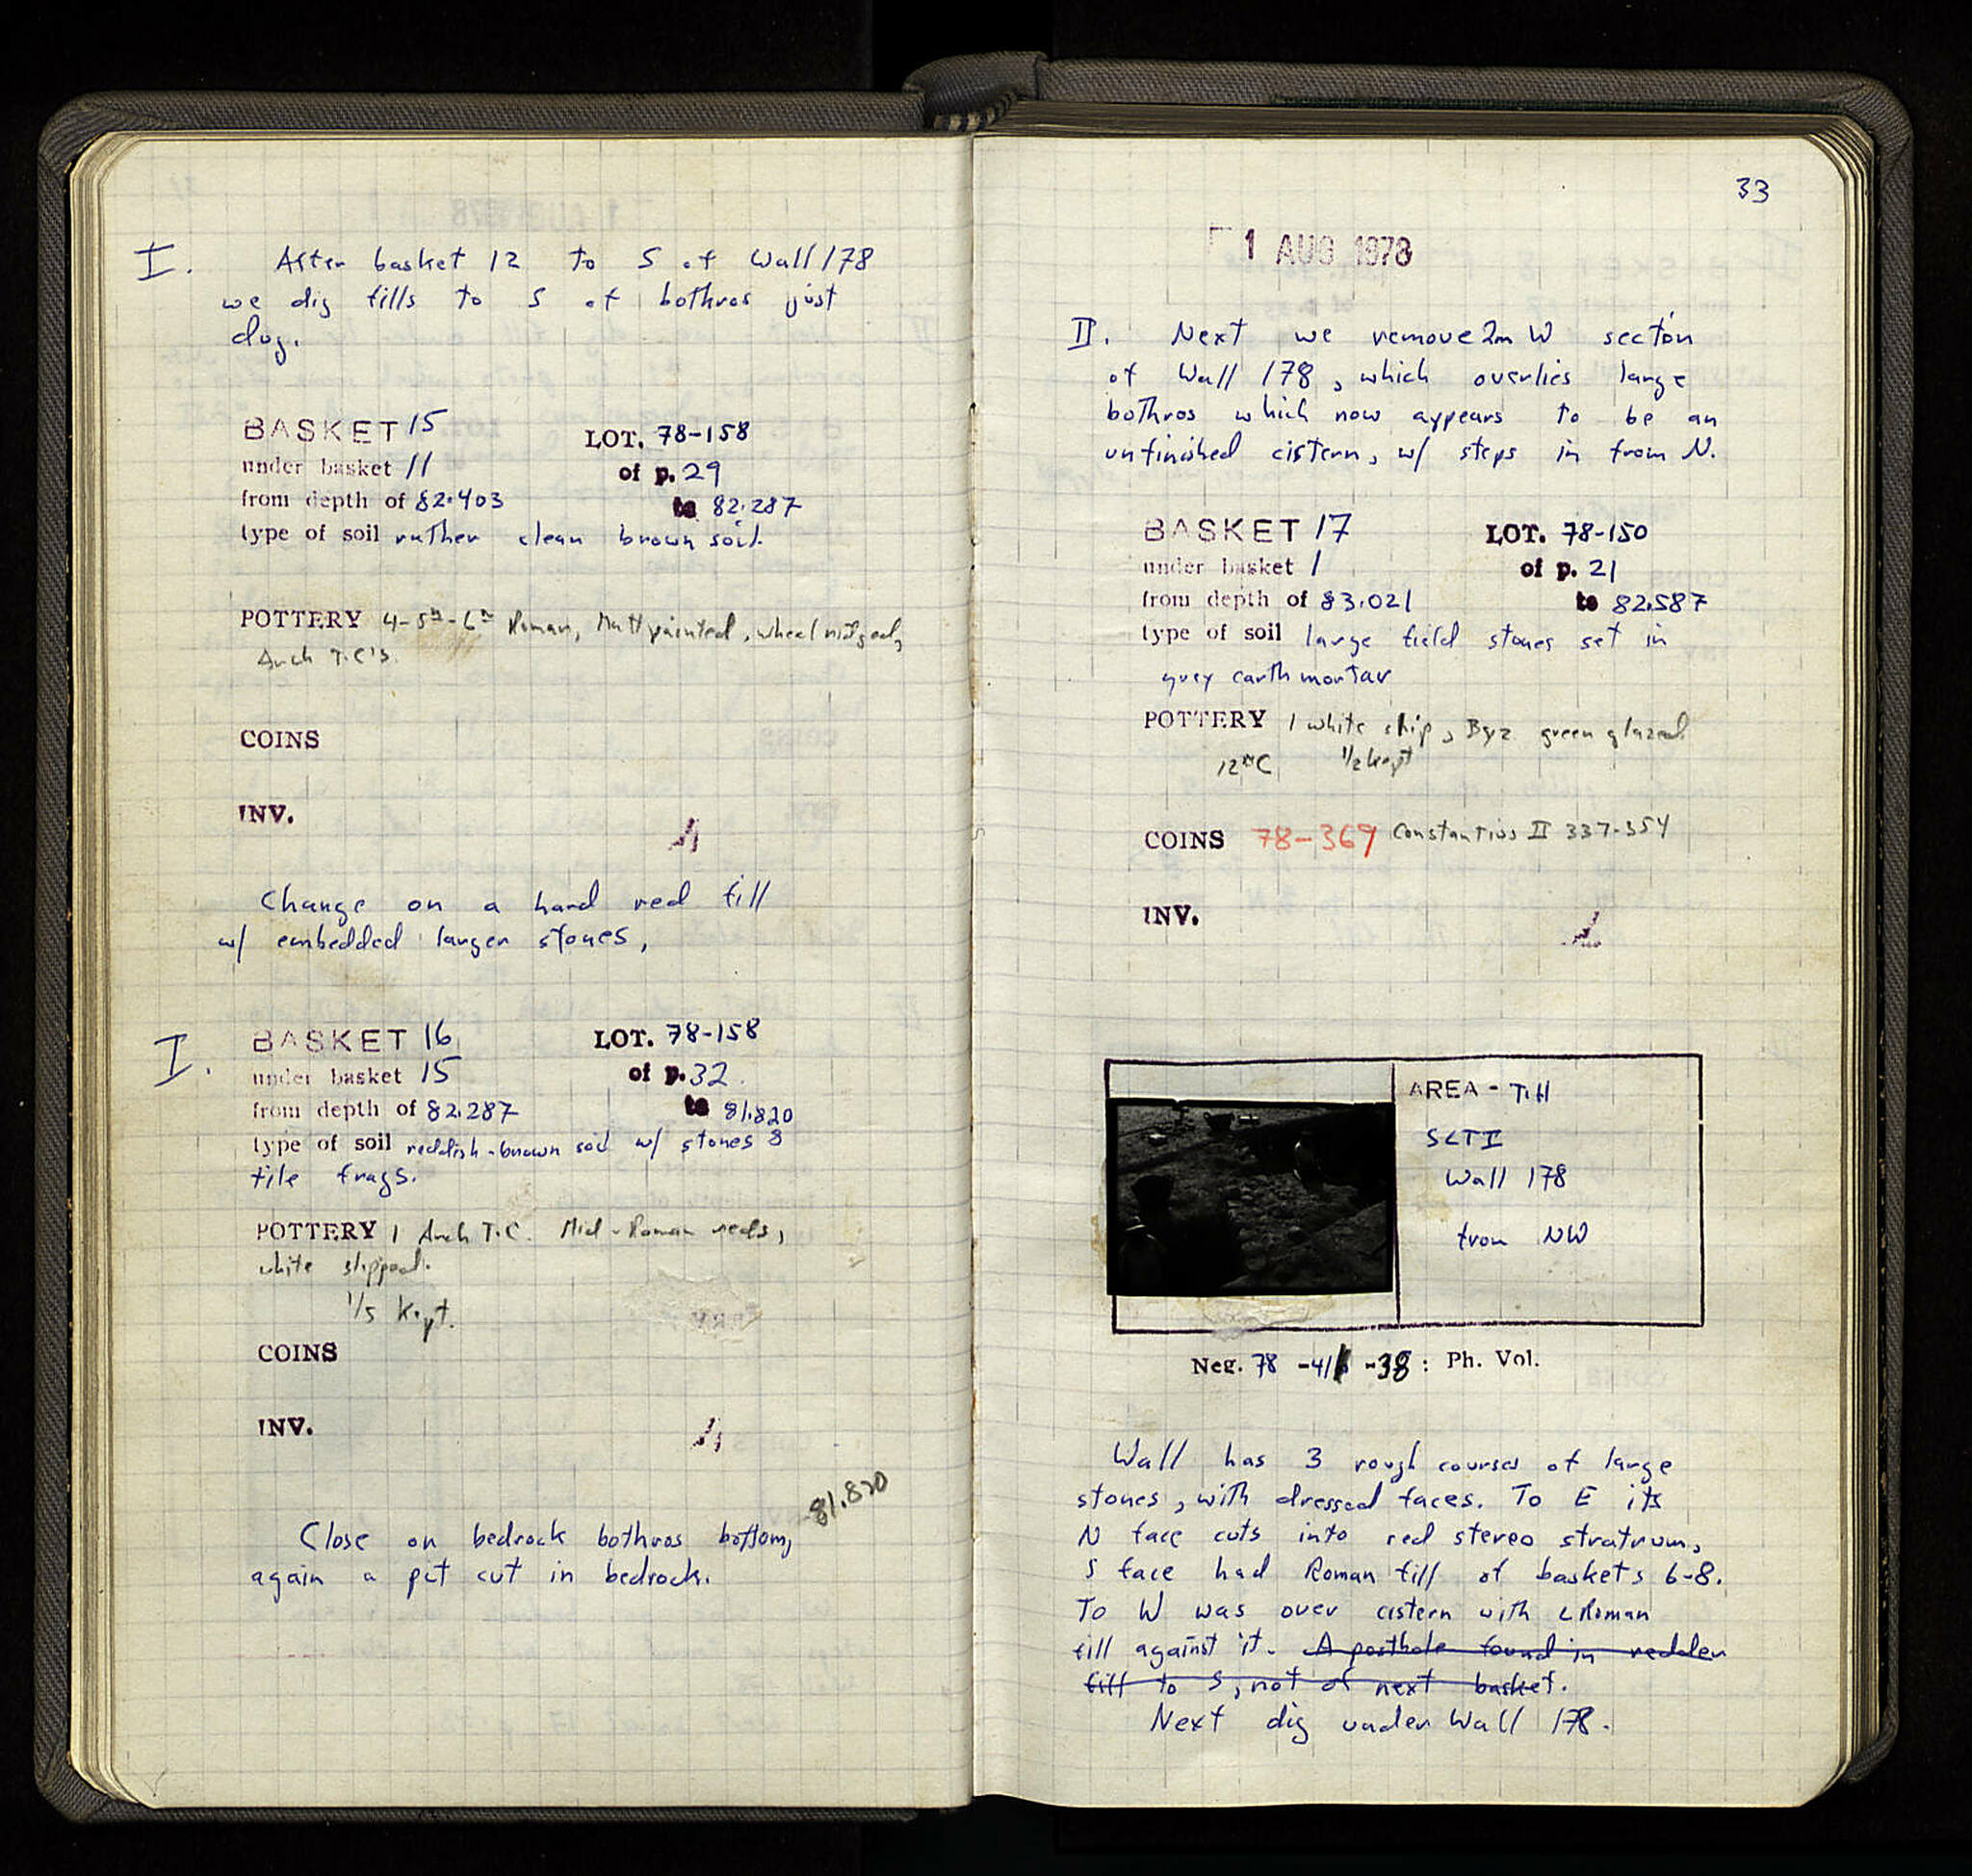 I. After basket 12 to S of Wall 178
we dig fills to S of bothros just
dug.
BASKET 15 LOT. 78-158
under basket 11 of p. 29
from depth of 82.403 to 82.287
type of soil rather clean brown soil.
POTTERY 4-5th-6th Roman, Mattpainted, wheel ridged,
Arch T.C's.
COINS
INV.
Change on a hard red fill
w/ embedded larger stones,
I. BASKET 16 LOT. 78-158
under basket 15 of p. 32
from depth of 82.287 to 81.820
type of soil reddish-brown soil w/ stones &
tile frags.
POTTERY 1 Arch T.C. Mid-Roman reds,
white slipped.
1/5 kept.
COINS
INV.
81.820
Close on bedrock bothros bottom,
again a pit cut in bedrock.
33
1 AUG 1978
II. Next we remove 2m W section
of Wall 178, which overlies large
bothros which now appears to be an
unfinished cistern, w/ steps in from N.
BASKET 17 LOT. 78-150
under basket 1 of p. 21
from depth of 83.021 to 82.587
type of soil large field stones set in
grey earth mortar
POTTERY 1 white slip, Byz green glazed
12thC 1/2 kept
COINS 78-369 Constantius II 337-354
INV.
AREA - T.H
SLTI
Wall 178
from NW
Neg. 78 -41 -38 : Ph. Vol.
Wall has 3 rough courses of large
stones, with dressed faces. To E its
N face cuts into red stereo stratum,
S face had Roman fill of baskets 6-8.
To W was over cistern with LRoman
fill against it. A posthole found in redder
fill to S, not of next basket.
Next dig under Wall 178.